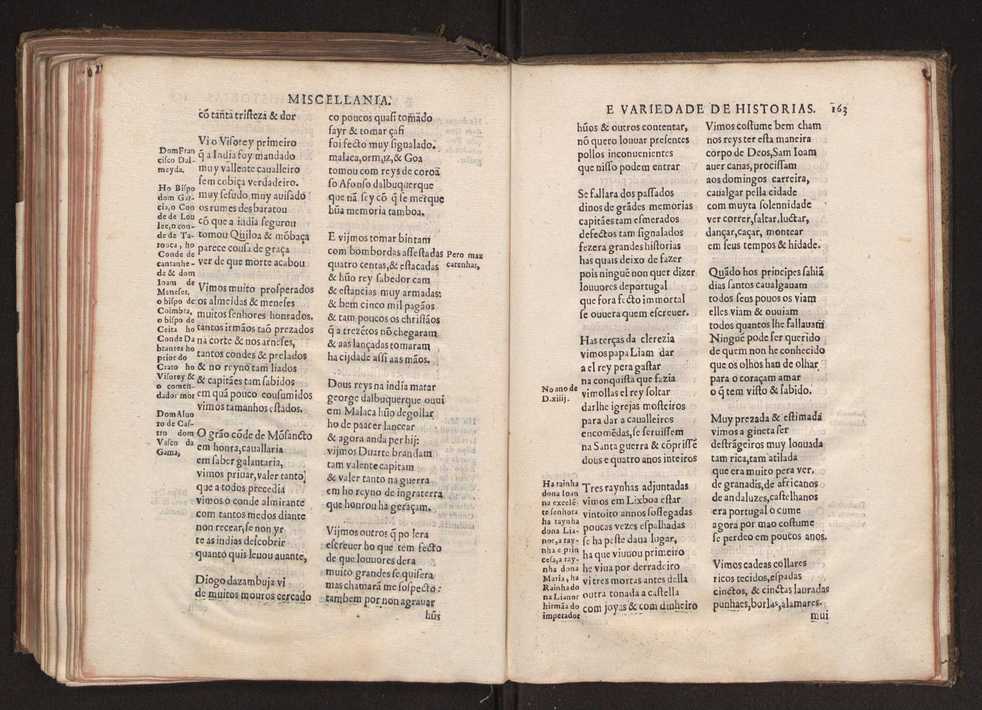 MISCELLANIA.
cõ tanta tristeza & dor
Vi o Visorey primeiro
q̃ a India foy mandado
muy vallente caualleiro
sem cobiça verdadeiro.
muy sesudo, muy auisado
os rumes desbaratou
cõ que a india segurou
tomou Quiloa & mõbaça
parece cousa de graça
ver de que morte acabou
Vimos muito prosperados
os almeidas & meneses
muitos senhores honrados.
tantos irmãos taõ prezados
na corte & nos arneses,
tantos condes & prelados
& no reyno tam liados
& capitães tam sabidos
em quã pouco cousumidos
vimos tamanhos estados.
O grão cõde de Mõsancto
em honra, cauallaria
em saber galantaria,
vimos priuar, valer tanto
que a todos precedia
vimos o conde almirante
com tantos medos diante
non recear, se non yr
te as indias descobrir
quanto quis leuou auante,
Diogo dazambuja vi
de muitos mouros cercado
Dom Fran
cisco Dal-
meyda.
Ho Bispo
dom Gar-
cia, o Con
de de Lou
lee, o con-
de de Ta-
rouca, ho
Conde de
cantanhe-
de & dom
Ioam de
Meneses,
o bispo de
Coimbra,
o bispo de
Ceita ho
Conde Da
brantes ho
prior do
Crato ho
Visorey &
o comen-
dador mor
Dom Aluo
ro de Cas-
tro dom
Vasco da
Gama,
co poucos quasi tomado
sayr & tomar çafi
foi fecto muy signalado.
malaca, ormuz, & Goa
tomou com reys de coroã
so Afonso dalbuquerque
que nã sey cõ q̃ se merque
hũa memoria tamboa.
E vijmos tomar bintam
com bombordas assestadas
quatro centas, & estacadas
& hũo rey sabedor cam
& estancias muy armadas:
& bem cinco mil pagãos
& tam poucos os christãos
q̃ a trezẽtos nõ chegaram
& aas lançadas tomaram
ha cijdade assi aas mãos.
Dous reys na india matar
george dalbuquerque ouui
em Malaca hũo degollar
ho de paacer lancear
& agora anda per hij:
vijmos Duarte brandam
tam valente capitam
& valer tanto na guerra
em ho reyno de ingraterra
que honrou ha geraçam.
Vijmos outros q̃ po sera
escreuer ho que tem fecto
de que louuores dera
muito grandes se quisera
mas chamarã me sospecto:
tambem por non agrauar
hũs
Pero maz
carenhas,
E VARIEDADE DE HISTORIAS. 163
hũos & outros contentar,
nõ quero louuar presentes
pollos inconuenientes
que nisso podem entrar
Se fallara dos passados
dinos de grãdes memorias
capitães tam esmerados
defectos tam signalados
fezera grandes historias
has quais deixo de fazer
pois ninguẽ non quer dizer
louuores deportugal
que fora fecto immortal
se ouuera quem escreuer.
Has terças da clerezia
vimos papa Liam dar
a el rey pera gastar
na conquista que fazia
vimollas el rey soltar
darlhe igrejas mosteiros
para dar a caualleiros
encomẽdas, se seruissem
na Santa guerra & cõprissẽ
dous e quatro anos inteiros
Tres raynhas adjuntadas
vimos em Lixboa estar
vintoito annos sossegadas
poucas vezes espalhadas
se ha peste daua lugar,
ha que viuuou primeiro
he viua por derradeiro
vi tres mortas antes della
outra tonada a castella
com joyas & com dinheiro
No ano de
D.xiiij.
Ha rainha
dona Ioan
na excelẽ-
te senhora
ha raynha
dona Lia-
nor, a ray-
nha e prin
cesa, a ray-
nha dona
Maria, ha
Rainha do
na Lianor
hirmãa do
imperador
Vimos costume bem cham
nos reys ter esta maneira
corpo de Deos, Sam Ioam
auer canas, procissam
aos domingos carreira,
caualgar pella cidade
com muyta solennidade
ver correr, saltar, luctar,
dançar, caçar, montear
em seus tempos & hidade.
Quãdo hos principes sahiã
dias santos caualgauam
todos seus pouos os viam
elles viam & ouuiam
todos quantos lhe fallauam
Ninguẽ pode ser querido
de quem non he conhecido
que os olhos han de olhar
para o coraçam amar
o q̃ tem visto & sabido.
Muy prezada & estimada
vimos a gineta ser
destrãgeiros muy louuada
tam rica, tam atilada
que era muito pera ver.
de granadis, de africanos
de andaluzes, castelhanos
era portugal o cume
agora por mao costume
se perdeo em poucos anos.
Vimos cadeas collares
ricos tecidos, espadas
cinctos, & cinctas lauradas
punhaes, borlas, alamares.
mui